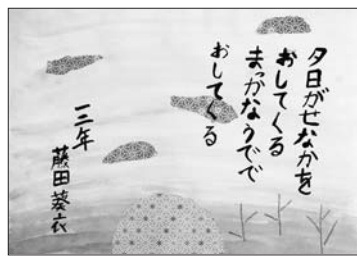 夕日がせなかを
おしてくる
まっかなうでで
おしてくる
三年
藤田葵衣